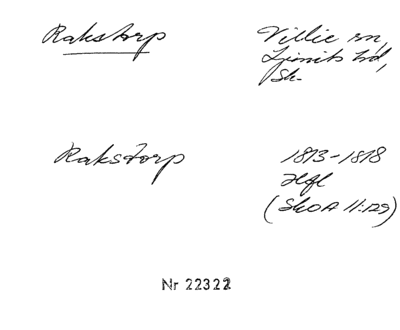 Rakstorp
Villie sn,
Ljunits hd,
Sk.
Rakstorp
1813-1818
Hfl
(SkOA 11:129)
Nr 22322